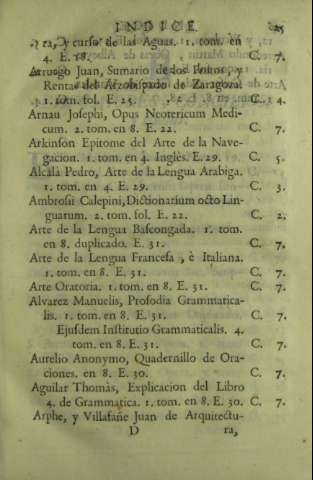 INDICE. 25
ra, y curso de las Aguas. 1. tom. en
4. E. 18. C. 7.
Arruego Juan, Sumario de los Frutos, y
Rentas del Arzobispado de Zaragoza.
1. tom. fol. E. 25. C. 4.
Arnau Josephi, Opus Neotericum Medi-
cum. 2. tom. en 8. E. 22. C. 7.
Arkinson Epitome del Arte de la Nave-
gacion. 1. tom. en 4. Inglès. E. 29. C. 5.
Alcalà Pedro, Arte de la Lengua Arabiga.
1. tom. en 4. E. 29. C. 3.
Ambrosii Calepini, Dictionarium octo Lin-
guarum. 2. tom. fol. E. 22. C. 2.
Arte de la Lengua Bascongada. 1. tom.
en 8. duplicado. E. 31. C. 7.
Arte de la Lengua Francesa, è Italiana.
1. tom. en 8. E. 31. C. 7.
Arte Oratoria. 1. tom. en 8. E. 31. C. 7.
Alvarez Manuelis, Prosodia Grammatica-
lis. 1. tom. en 8. E. 31. C. 7.
Ejusdem Institutio Grammaticalis. 4.
tom. en 8. E. 31. C. 7.
Aurelio Anonymo, Quadernillo de Ora-
ciones. en 8. E. 30. C. 7.
Aguilar Thomàs, Explicacion del Libro
4. de Grammatica. 1. tom. en 8. E. 30. C. 7.
Arphe, y Villafañe Juan de Arquitectu-
D ra,